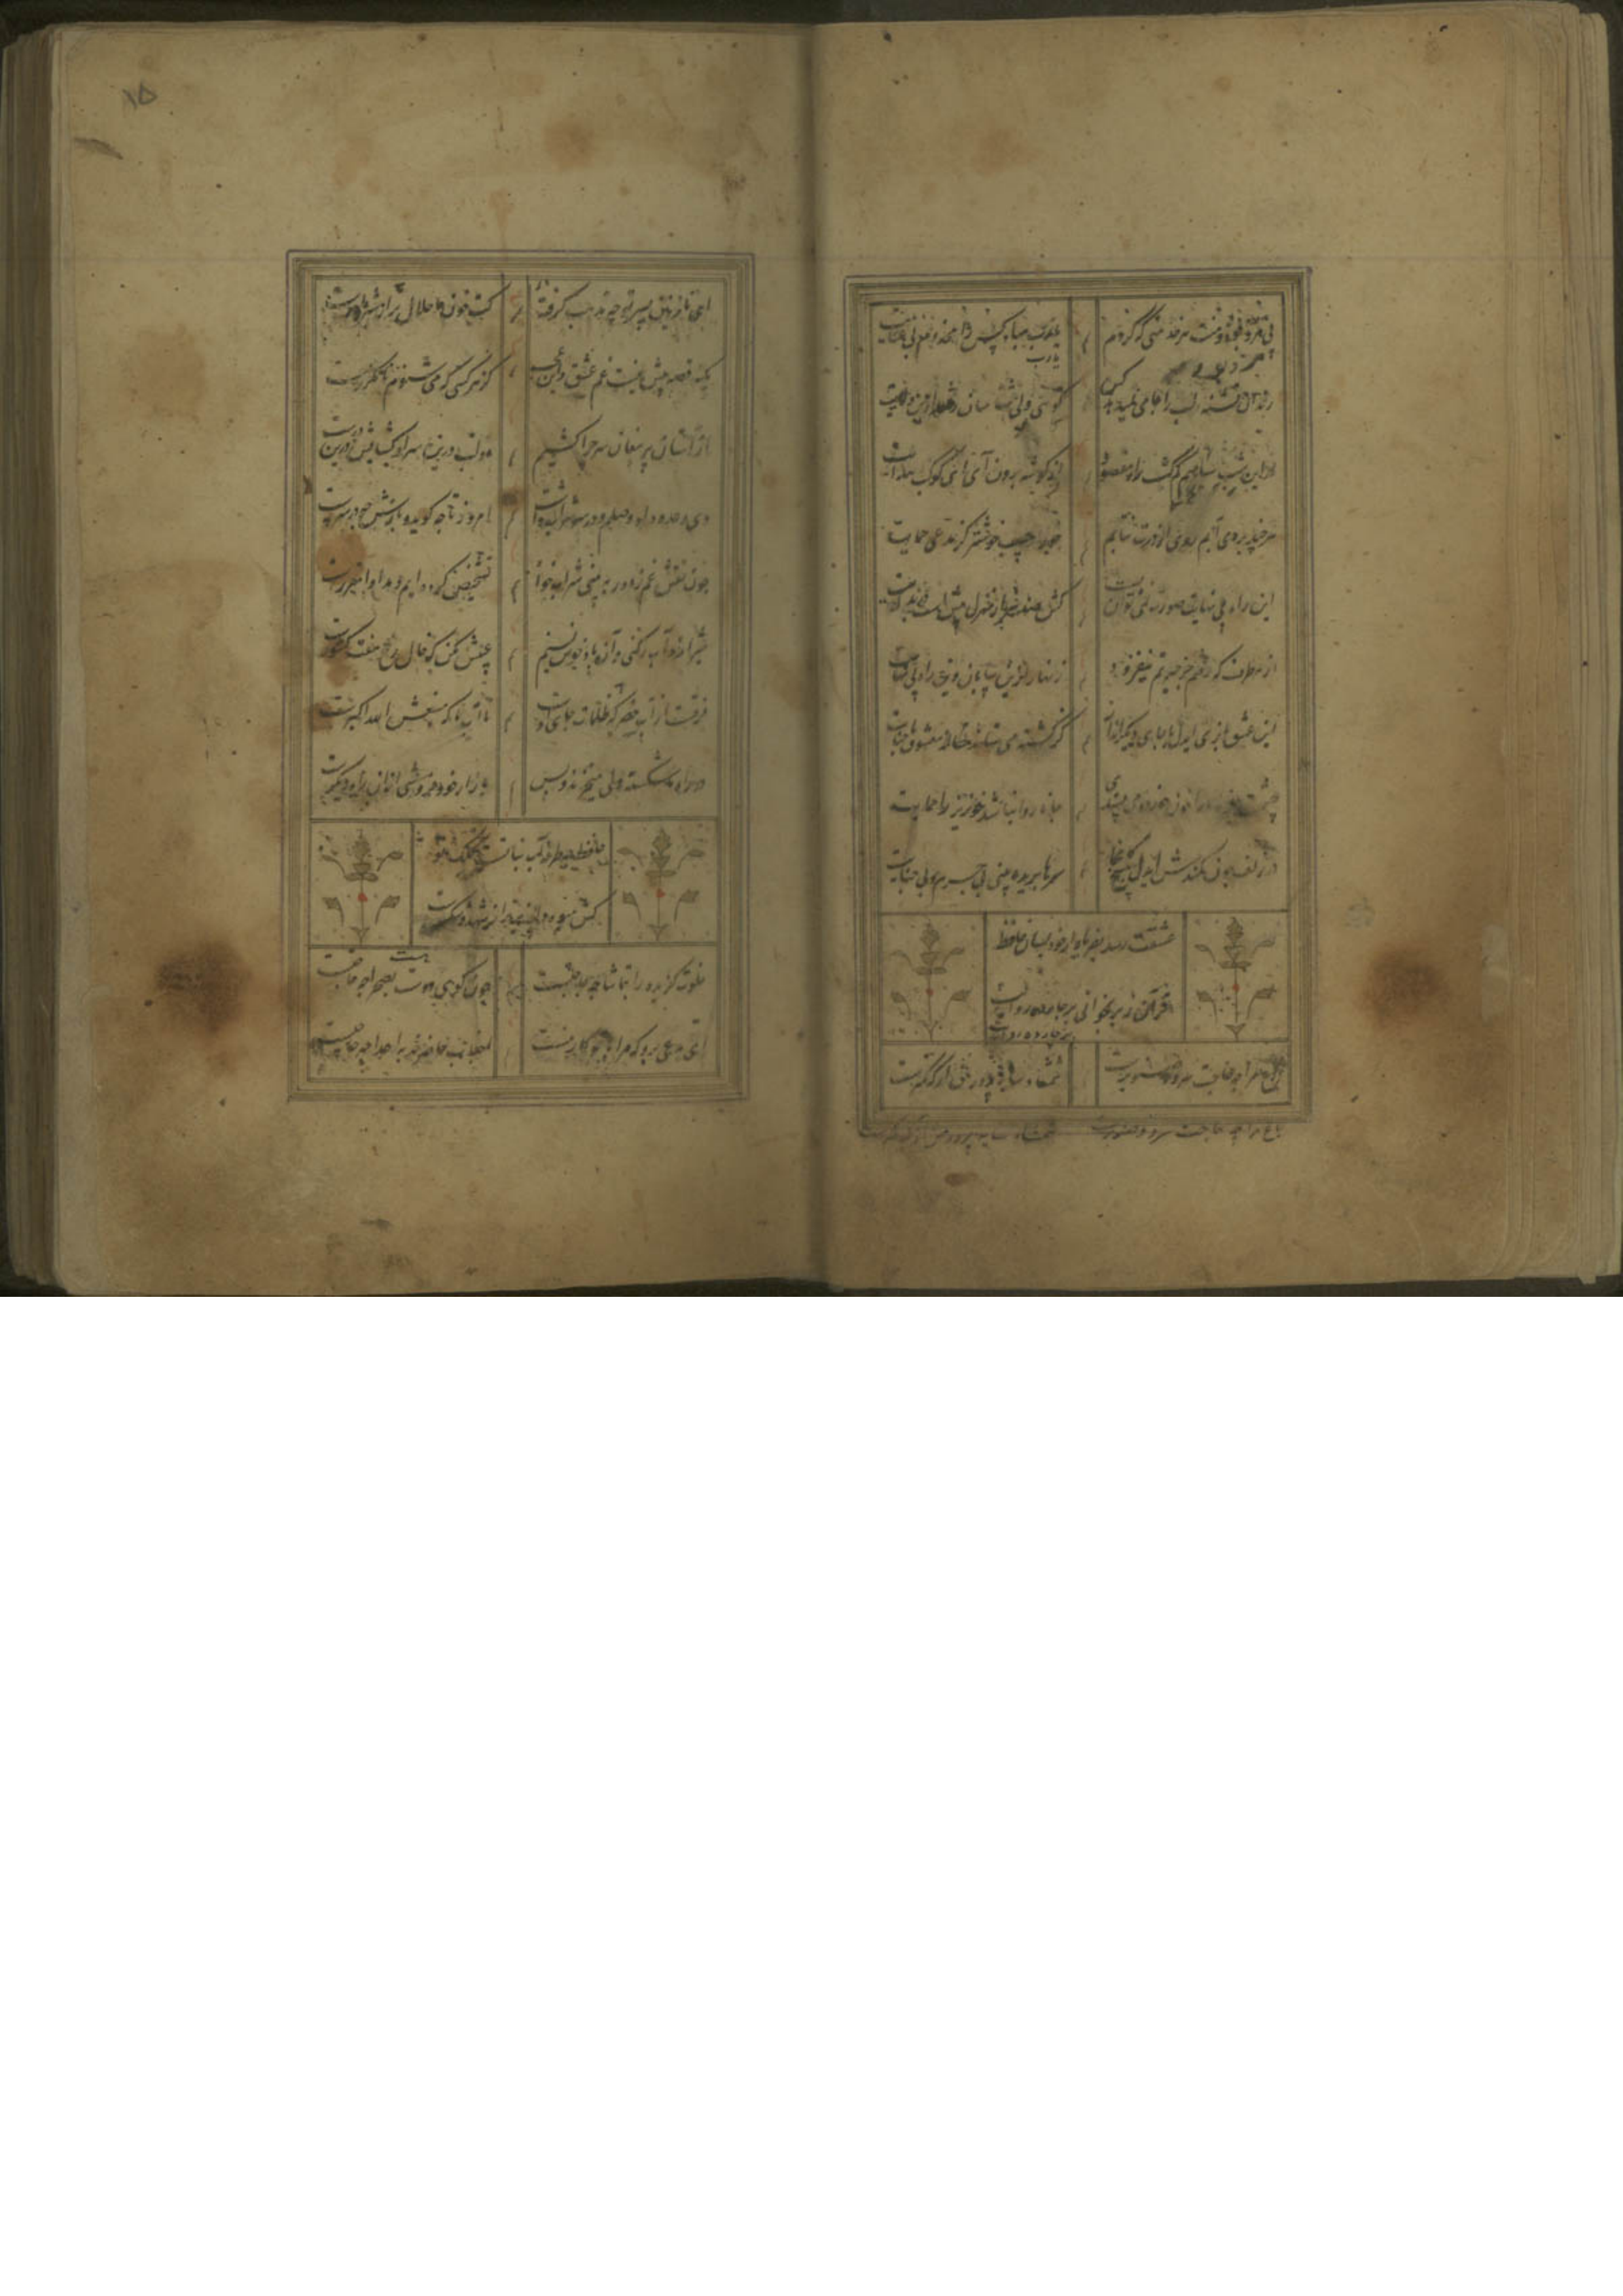 بی مزد بود و منت هر خدمتی که کردم
یارب مباد کس را مخدوم بی عنایت
یارب
رندان تشنه لب را جامی نمیدهد کس
گویی ولی شناسان رفتند ازین ولایت
در این شب سیاهم گم گشت راه مقصود
از گوشه برون آی ای کوکب هدایت
هر چند بردی آبم روی از درت نتابم
جور از حبیب خوشتر کز مدعی حمایت
این راه بی نهایت صورت نمی توان بست
کش صد هزار منزل بیش است در بدایت
از هر طرف که رفتم جز حیرتم نیفزود
زنهار ازین بیابان وین راه بی نهایت
این عشق
چشمت
در زلف چون کمندش ای دل مپیچ کانجا
سرها بریده بینی بی جرم و بی جنایت
عشقت رسد بفریاد ار خود بسان حافظ
قرآن ز بر بخوانی در چارده روایت
باغ مرا چه حاجت سرو و صنوبرست
شمشاد سایه پرور من از که کمترست
باغ مرا چه حاجت سرو و صنوبرست
شمشاد سایه پرور من از که کمترست
۱۵
ای نازنین پسر تو چه مذهب گرفته
کت خون ما حلال تر از شیر مادرست
یک قصه بیش نیست غم عشق وین عجب
کز هر کسی که می شنوم نامکررست
از آستان پیر مغان سر چرا کشیم
دولت درین سرا و گشایش درین درست
دی وعده داد وصلم و در سر شراب داشت
امروز تا چه گوید و بازش چه در سرست
چون نقش غم ز دور ببینی شراب خواه
تشخیص کرده ایم و مداوا مقررست
شیراز و آب رکنی و آن باد خوش نسیم
عیبش مکن که خال رخ هفت کشورست
فرقست از آب خضر که ظلمات جای اوست
تا آب ما که منبعش الله اکبرست
در راه ما شکسته دلی میخرند و بس
بازار خود فروشی از آن راه دیگرست
حافظ چه طرفه شاخ نباتیست کلک تو
کش میوه دلپذیرتر از شهد و شکرست
خلوت گزیده را بتماشا چه حاجتست
چون کوی دوست هست بصحرا چه حاجتست
ای مدعی برو که مرا با تو کار نیست
احباب حاضرند باعدا چه حاجتست